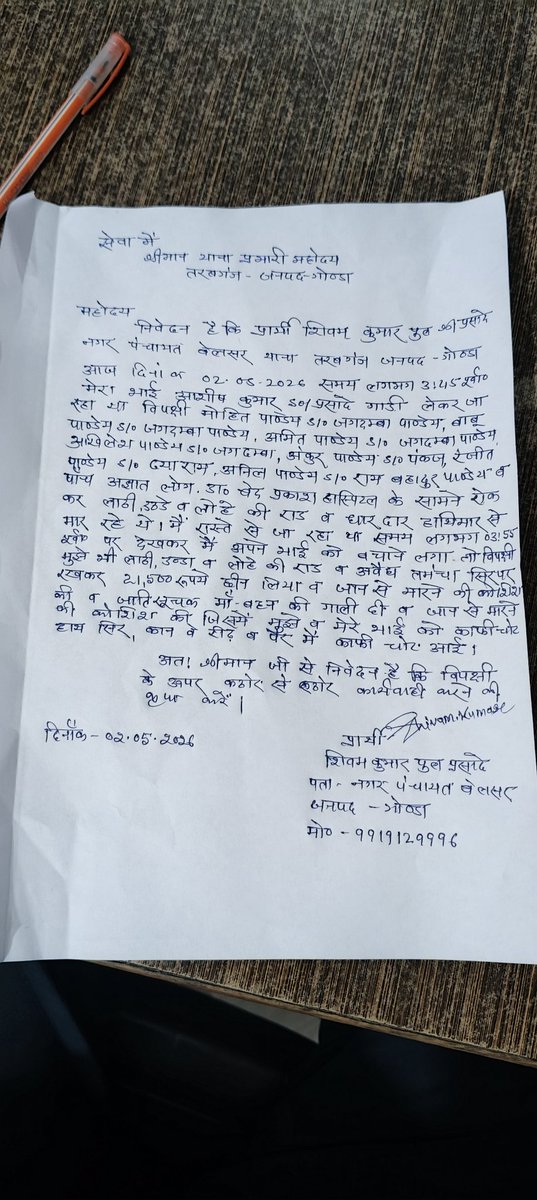 सेवा में
श्रीमान थाना प्रभारी महोदय
तरबगंज - जनपद-गोण्डा
महोदय
निवेदन है कि प्रार्थी शिवम कुमार पुत्र श्री प्रसादे
नगर पंचायत बेलसर थाना तरबगंज जनपद - गोण्डा
आज दिनांक 02.05.2026 समय लगभग 3:45
मेरा भाई आशीष कुमार s/o प्रसादे गाडी लेकर जा
रहा था विपक्षी मोहित पाण्डेय s/o जगदम्बा पाण्डेय, बाबू
पाण्डेय s/o जगदम्बा पाण्डेय, अमित पाण्डेय s/o जगदम्बा पाण्डेय,
अखिलेश पाण्डेय s/o जगदम्बा, अंकुर पाण्डेय s/o पंकज, रंजीत
पाण्डेय s/o दयाराम, अनिल पाण्डेय s/o राम बहादुर पाण्डेय व
पांच अज्ञात लोग. डा० वेद प्रकाश हास्पिटल के सामने रोक
कर लाठी, डण्डे व लोहे की राड व धारदार हथियार से
मार रहे थे। मैं रास्ते से जा रहा था समय लगभग 03:55
पर देखकर मैं अपने भाई को बचाने लगा. तो विपक्षी
मुझे भी लाठी, डण्डा व लोहे की राड व अवैध तमंचा सिर पर
रखकर 21,500 रुपये छीन लिया व जान से मारने की कोशिश
की व जातिसूचक माँ-बहन की गाली दी व जान से मारने
की कोशिश की जिसमें मुझे व मेरे भाई को काफी चोट
हाथ सिर, कान व पीठ व पैर में काफी चोट आई।
अतः श्रीमान जी से निवेदन है कि विपक्षी
के ऊपर कठोर से कठोर कार्यवाही करने की
कृपा करें।
दिनाँक - 02.05.2026
प्रार्थी Shivam.Kumar
शिवम कुमार पुत्र प्रसादे
पता - नगर पंचायत बेलसर
जनपद - गोण्डा
मो० - 9919129996